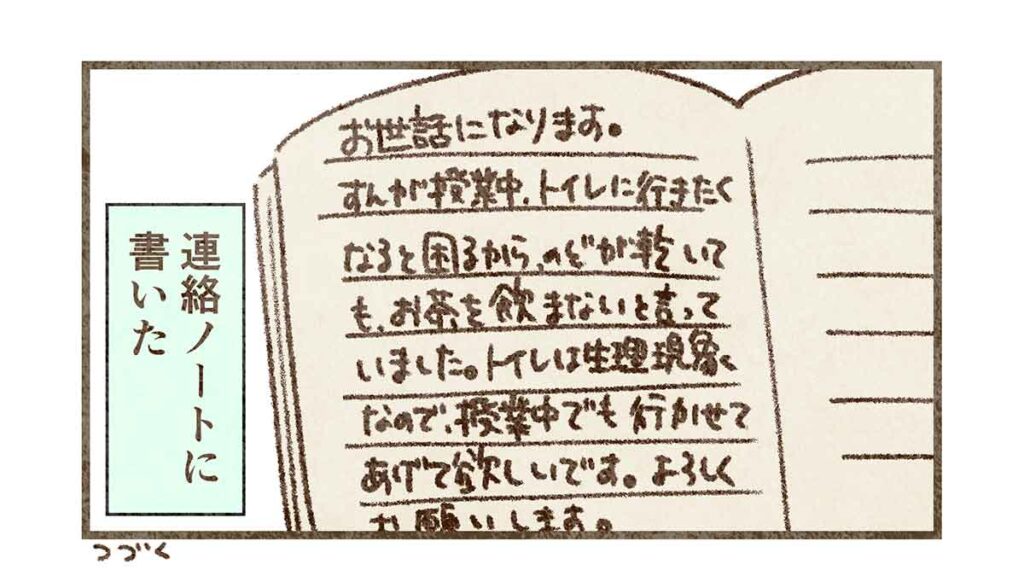 連絡ノートに
書いた
お世話になります。
すんが授業中、トイレに行きたく
なると困るから、のどが乾いて
も、お茶を飲まないと言って
いました。トイレは生理現象
なので、授業中でも行かせて
あげて欲しいです。よろしく
お願いします。
つづく